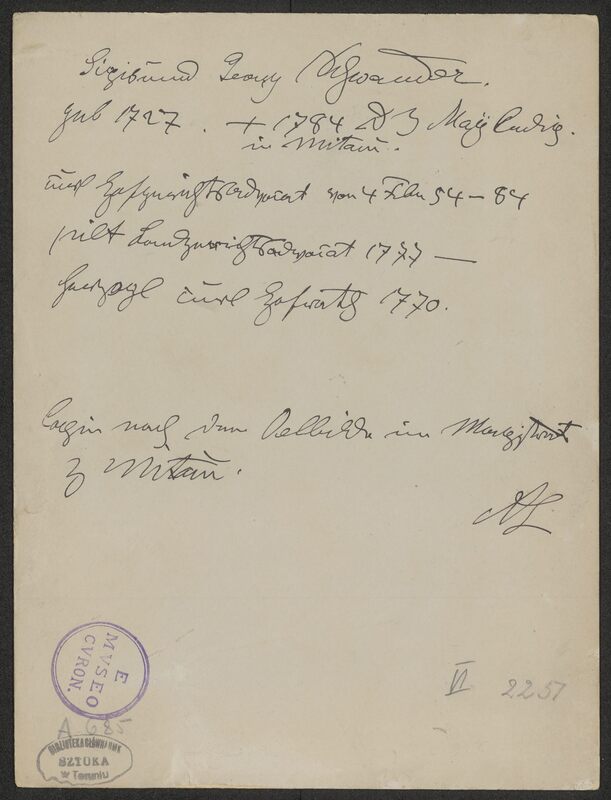 Sigismund Georg Schwander.
geb 1727. + 1784 d 3 Maji ledig.
in Mitau.
curl Hofgerichtsadvocat von 4 Febr 54–84
pilt Landgerichtsadvocat 1777 —
herzogl curl Hofrath 1770.
Copia nach dem Oelbilde im Magistrat
z Mitau.
E
MVSEO
CVRON.
VI 2251
A 685
BIBLIOTEKA GŁÓWNA UMK
SZTUKA
w Toruniu